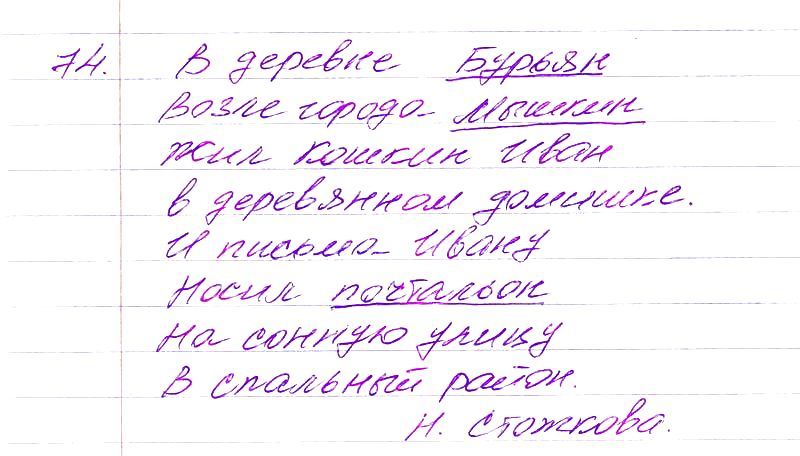 74. В деревне Бурьян
Возле города Мышкин
Жил Кошкин Иван
в деревянном домишке.
И письма Ивану
Носил почтальон
На сонную улицу
В спальный район.
Н. Стожкова.